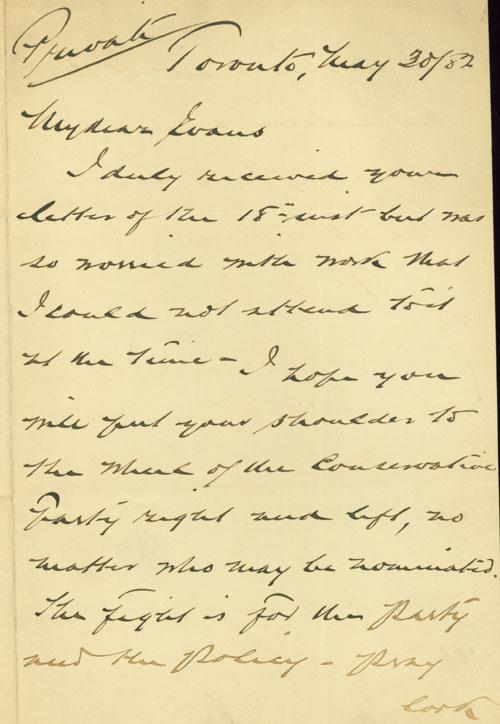 Private
Toronto, May 30/82
My dear Evans
I duly received your
letter of the 18th inst but was
so worried with work that
I could not attend to it
at the time - I hope you
will put your shoulder to
the wheel of the Conservative
Party right and left, no
matter who may be nominated.
The fight is for the Party
and the Policy - Pray
look